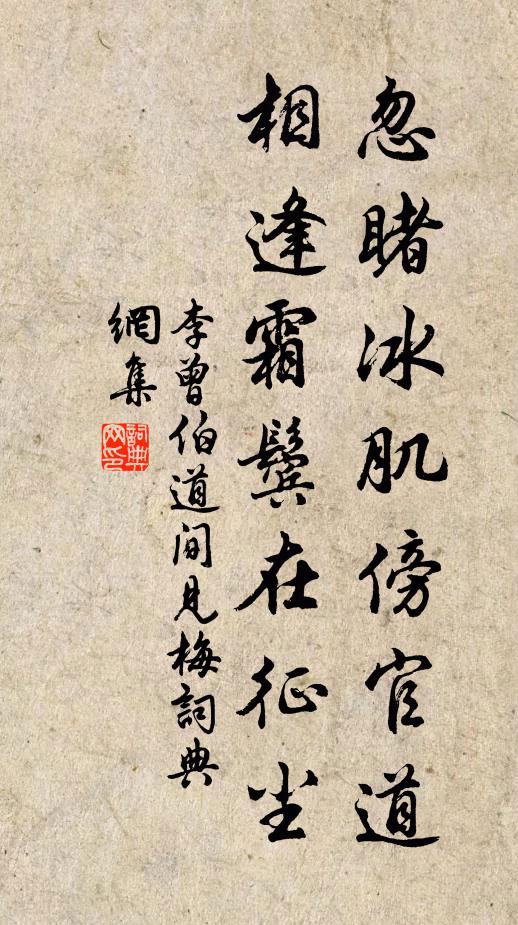 忽睹冰肌傍官道
相逢霜鬓在征尘
李曾伯道间见梅詞典
網集
詞典
网印